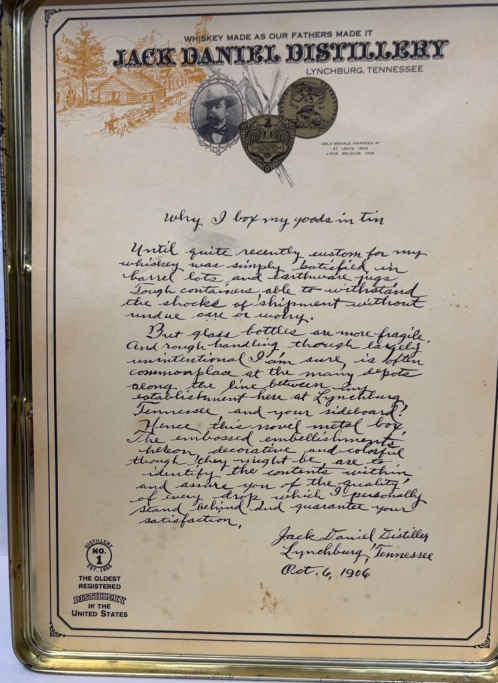 WHISKEY MADE AS OUR FATHERS MADE IT
JACK DANIEL DISTILLERY
LYNCHBURG, TENNESSEE
GOLD MEDALS AWARDED AT
ST. LOUIS 1904
LIEGE, BELGIUM 1905
Why I box my goods in tin
Until quite recently custom for my
whiskey was simply satisfied in
barrel lots and earthware jugs
Tough containers able to withstand
the shocks of shipment without
undue care or worry.
But glass bottles are more fragile.
And rough handling though largely
unintentional I am sure, is often
commonplace at the many depots
along the line between my
establishment here at Lynchburg
Tennessee, and your sideboard.
Hence this novel metal box.
The embossed embellishments
hereon, decorative and colorful
though they might be are to
identify the contents within
and assure you of the quality
of every drop which I personally
stand behind and guarantee your
satisfaction.
Jack Daniel Distiller
Lynchburg, Tennessee
Oct. 6, 1906
DISTILLERY
NO.
1
EST. 1866
THE OLDEST
REGISTERED
DISTILLERY
IN THE
UNITED STATES